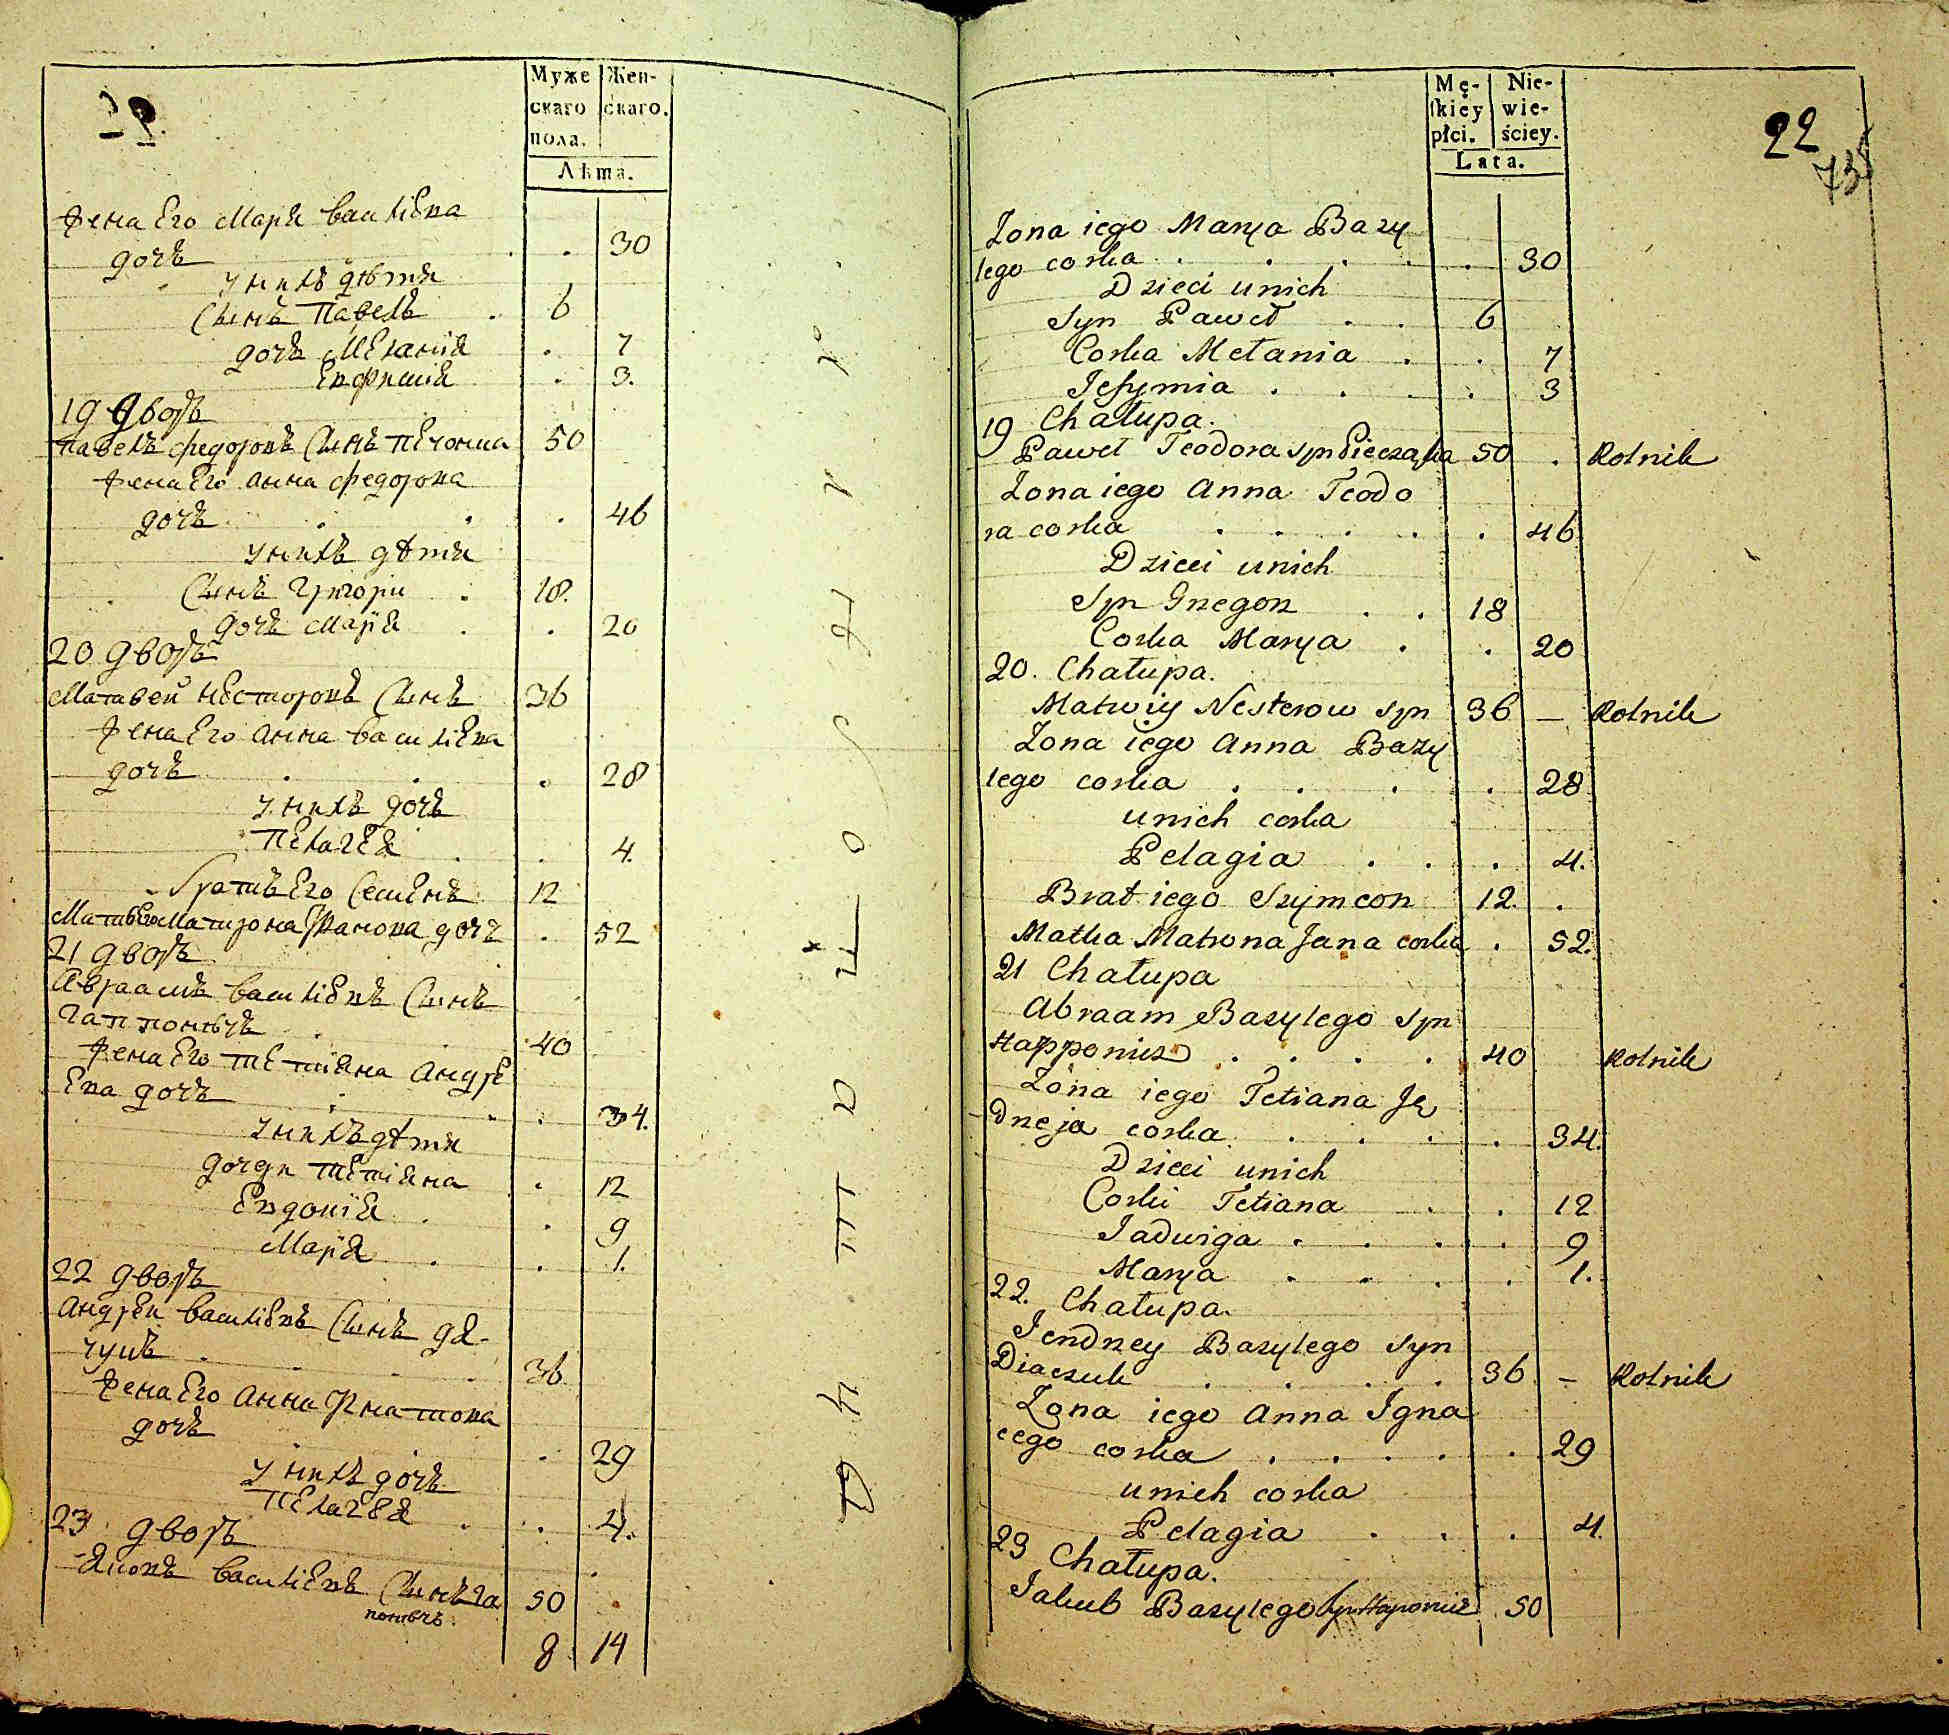 22
Муже
скаго
пола.
Жен-
скаго.
Лѣта.
жена Его Марія Василіева
дочъ . . 30
у нихъ дѣти
Сынъ Павелъ . 6
дочъ Меланія . 7
Евфимія . 3.
19 дворъ
Павелъ Федоровъ Сынъ Печонка 50
жена Его Анна Федорова
дочъ . . . 46
у нихъ дѣти
Сынъ Григори . 18.
дочъ Марія . . 20
20 дворъ
Матвей Несторовъ Сынъ 36
жена Его Анна Василіева
дочъ . . . 28
у нихъ дочъ
Пелагея . . 4.
братъ Его Семенъ 12
Мать Его Матрона Іванова дочъ . 52
21 дворъ
Авраамъ Василіевъ Сынъ
Гаппоничъ . 40
жена Его Тетіяна Андре
Ева дочъ . . . 34.
у нихъ дѣти
дочди Тетіяна . 12
Евдокія . . 9
Марія . . 1.
22 дворъ
Андреи Василіевъ Сынъ Дя-
чукъ . . . 36
жена Его Анна Игнатова
дочъ . . 29
у нихъ дочъ
Пелагея . . 4.
23 дворъ
Яковъ Василіевъ Сынъ Га 50
поничъ
8 14
Mę-
skiey
płci.
Nie-
wie-
ściey.
Lata.
22
Zona iego Marya Bazy
lego corka . . . . . 30
Dzieci unich
Syn Paweł . . 6
Corka Mełania . . 7
Jefymia . . . . 3
19 Chałupa.
Paweł Teodora syn Piecząka 50 . Rolnik
Zona iego Anna Teodo
ra corka . . . . . . 46
Dzieci unich
Syn Grzegorz . . 18
Corka Marya . . 20
20. Chałupa.
Matwiy Nesterow syn 36 — Rolnik
Zona iego Anna Bazy
lego corka . . . . 28
unich corka
Pelagia . . . 4.
Brat iego Szymeon 12. .
Matka Matrona Jana corka . 52.
21 Chałupa
Abraam Bazylego syn
Happonicz . . . . 40 Rolnik
Zona iego Tetiana Ję
drzeja corka . . . . 34.
Dzieci unich
Corki Tetiana . . 12
Jadwiga . . . . 9
Marya . . . . 1.
22. Chałupa.
Jendrzey Bazylego syn
Diaczuk . . . . 36 — Rolnik
Zona iego Anna Igna
cego corka . . . . . 29
unich corka
Pelagia . . . 4.
23 Chałupa.
Jakub Bazylego syn Haponicz 50